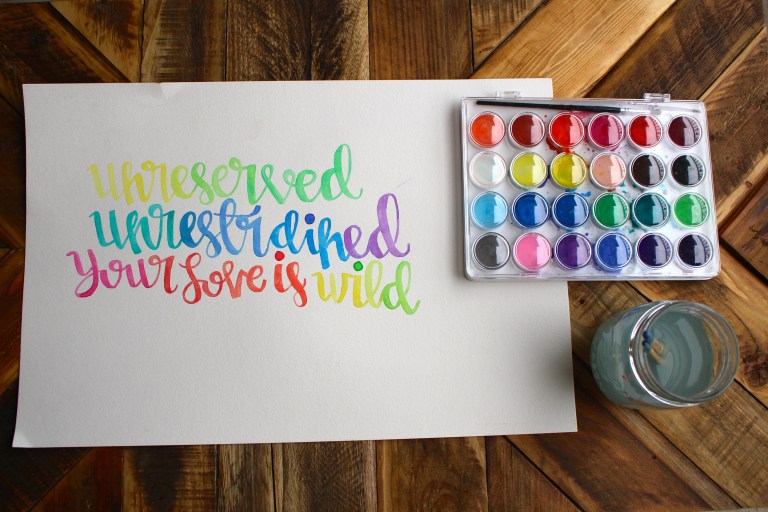 unreserved
unrestrained
Your Love is wild